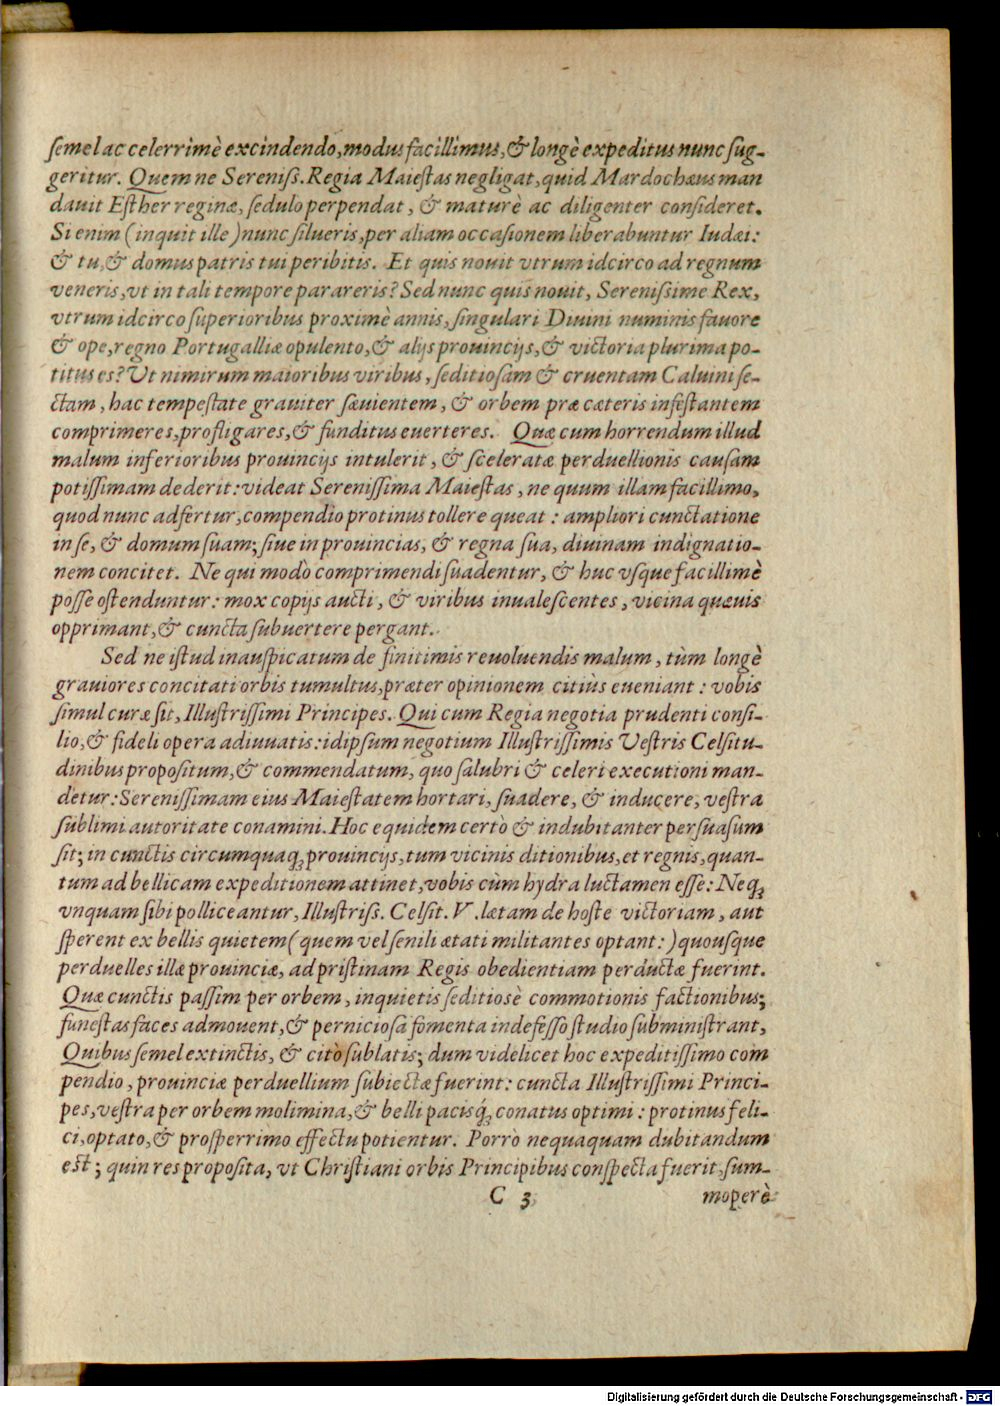 ſemel ac celerrimè excindendo, modus facillimus, & longè expeditus nunc ſug-
geritur. Quem ne Sereniſſ. Regia Maieſtas negligat, quid Mardochæus man
dauit Eſther reginæ, ſedulo perpendat, & maturè ac diligenter conſideret.
Si enim (inquit ille) nunc ſilueris, per aliam occaſionem liberabuntur Iudæi:
& tu, & domus patris tui peribitis. Et quis nouit vtrum idcirco ad regnum
veneris, vt in tali tempore parareris? Sed nunc quis nouit, Sereniſſime Rex,
vtrum idcirco ſuperioribus proximè annis, ſingulari Diuini numinis fauore
& ope, regno Portugalliæ opulento, & alijs prouincijs, & victoria plurima po-
titus es? Ut nimirum maioribus viribus, ſeditioſam & cruentam Caluini ſe-
ctam, hac tempeſtate grauiter ſæuientem, & orbem præ cæteris infeſtantem
comprimeres, profligares, & funditus euerteres. Quæ cum horrendum illud
malum inferioribus prouincijs intulerit, & ſceleratæ perduellionis cauſam
potiſſimam dederit: videat Sereniſſima Maieſtas, ne quum illam facillimo,
quod nunc adfertur, compendio protinus tollere queat: ampliori cunctatione
in ſe, & domum ſuam; ſiue in prouincias, & regna ſua, diuinam indignatio-
nem concitet. Ne qui modò comprimendi ſuadentur, & huc vſque facillimè
poſſe oſtenduntur: mox copijs aucti, & viribus inualeſcentes, vicina quæuis
opprimant, & cuncta ſubuertere pergant.
Sed ne iſtud inauſpicatum de finitimis reuoluendis malum, tùm longè
grauiores concitati orbis tumultus, præter opinionem citiùs eueniant: vobis
ſimul curæ ſit, Illuſtriſſimi Principes. Qui cum Regia negotia prudenti conſi-
lio, & fideli opera adiuuatis: id ipſum negotium Illuſtriſſimis Veſtris Celſitu-
dinibus propoſitum, & commendatum, quo ſalubri & celeri executioni man-
detur: Sereniſſimam eius Maieſtatem hortari, ſuadere, & inducere, veſtra
ſublimi autoritate conamini. Hoc equidem certò & indubitanter perſuaſum
ſit; in cunctis circumquaqꝫ prouincijs, tum vicinis ditionibus, et regnis, quan-
tum ad bellicam expeditionem attinet, vobis cùm hydra luctamen eſſe: Neqꝫ
vnquam ſibi polliceantur, Illuſtriſſ. Celſit. V. lætam de hoſte victoriam, aut
ſperent ex bellis quietem (quem vel ſenili ætati militantes optant:) quouſque
perduelles illæ prouinciæ, ad priſtinam Regis obedientiam perductæ fuerint.
Quæ cunctis paſſim per orbem, inquietis ſeditioſè commotionis factionibus;
funeſtas faces admouent, & pernicioſa fomenta indefeſſo ſtudio ſubminiſtrant,
Quibus ſemel extinctis, & citò ſublatis; dum videlicet hoc expeditiſſimo com
pendio, prouinciæ perduellium ſubiectæ fuerint: cuncta Illuſtriſſimi Princi-
pes, veſtra per orbem molimina, & belli pacisq́ꝫ conatus optimi: protinus feli-
ci, optato, & proſperrimo effectu potientur. Porrò nequaquam dubitandum
eſt; quin res propoſita, vt Chriſtiani orbis Principibus conſpecta fuerit, ſum-
C 3
moperè
Digitalisierung gefördert durch die Deutsche Forschungsgemeinschaft - DFG